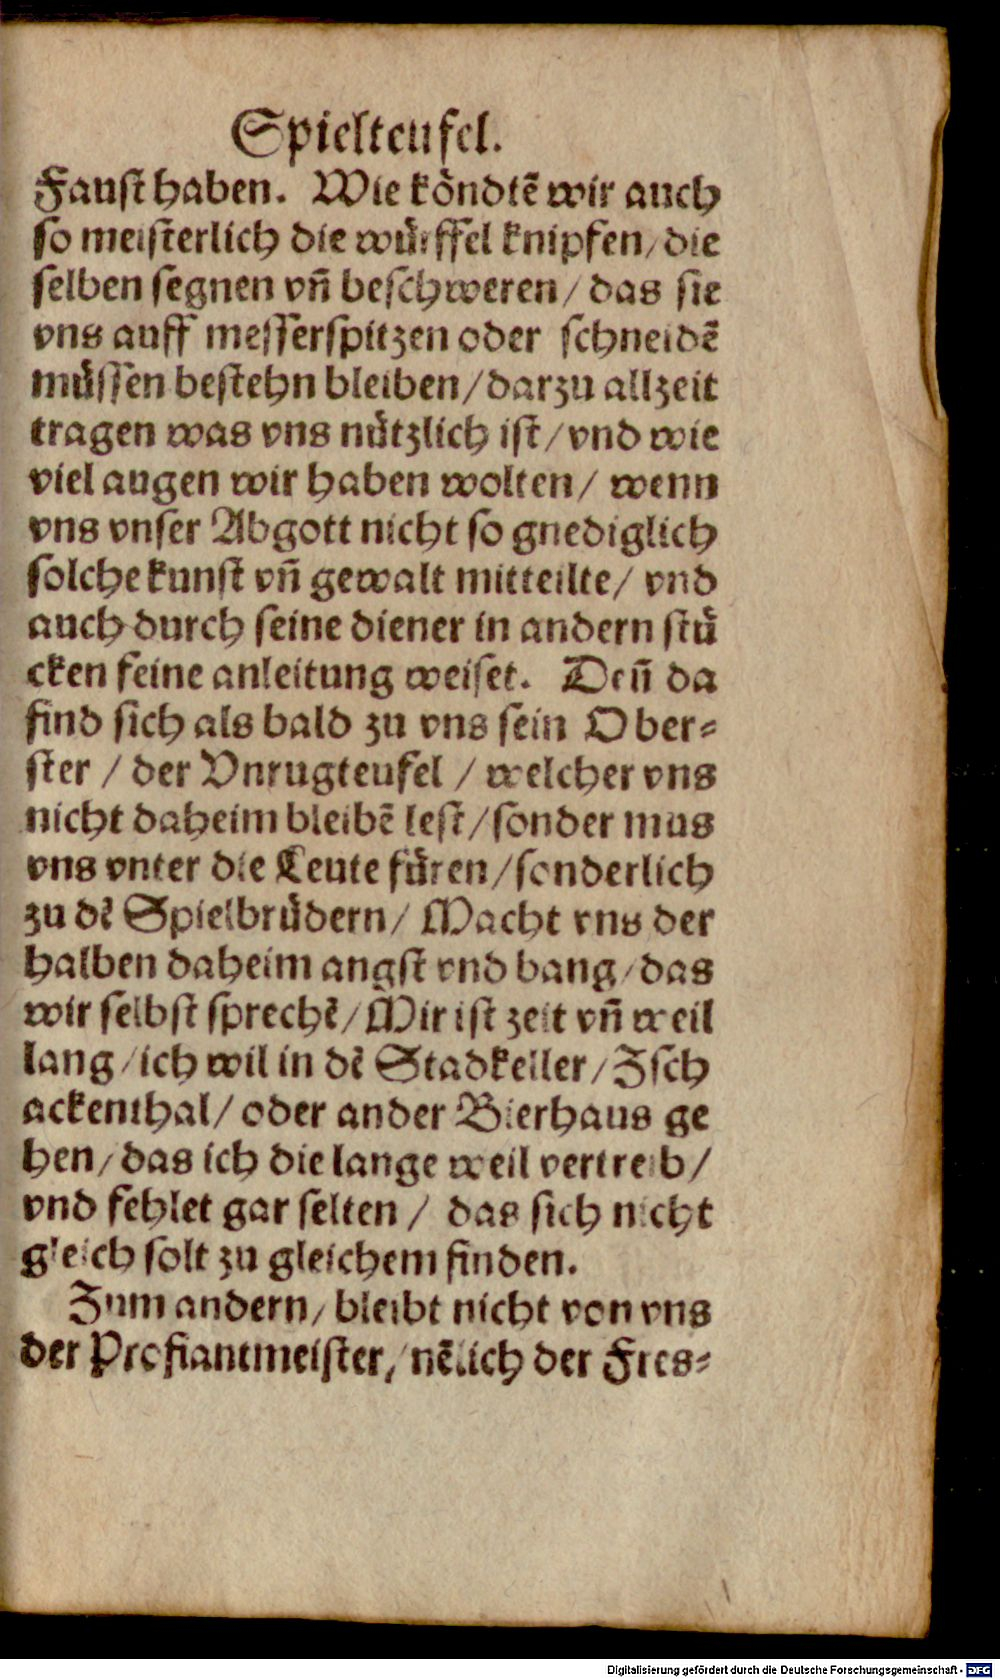 Spielteufel.
Faust haben. Wie köndtē wir auch
so meisterlich die würffel knipfen/ die
selben segnen vñ beschweren/ das sie
vns auff messerspitzen oder schneidē
müssen bestehn bleiben/ darzu allzeit
tragen was vns nützlich ist/ vnd wie
viel augen wir haben wolten/ wenn
vns vnser Abgott nicht so gnediglich
solche kunst vñ gewalt mitteilte/ vnd
auch durch seine diener in andern stü
cken feine anleitung weiset. Deñ da
find sich als bald zu vns sein Ober-
ster / der Vnrugteufel / welcher vns
nicht daheim bleibē lest/ sonder mus
vns vnter die Leute füren/ sonderlich
zu dē Spielbrüdern/ Macht vns der
halben daheim angst vnd bang/ das
wir selbst sprechē/ Mir ist zeit vñ weil
lang/ ich wil in dē Stadkeller/ Zsch
ackenthal/ oder ander Bierhaus ge
hen/ das ich die lange weil vertreib/
vnd fehlet gar selten / das sich nicht
gleich solt zu gleichem finden.
Zum andern/ bleibt nicht von vns
der Profiantmeister/ nēlich der Fres-
Digitalisierung gefördert durch die Deutsche Forschungsgemeinschaft - DFG